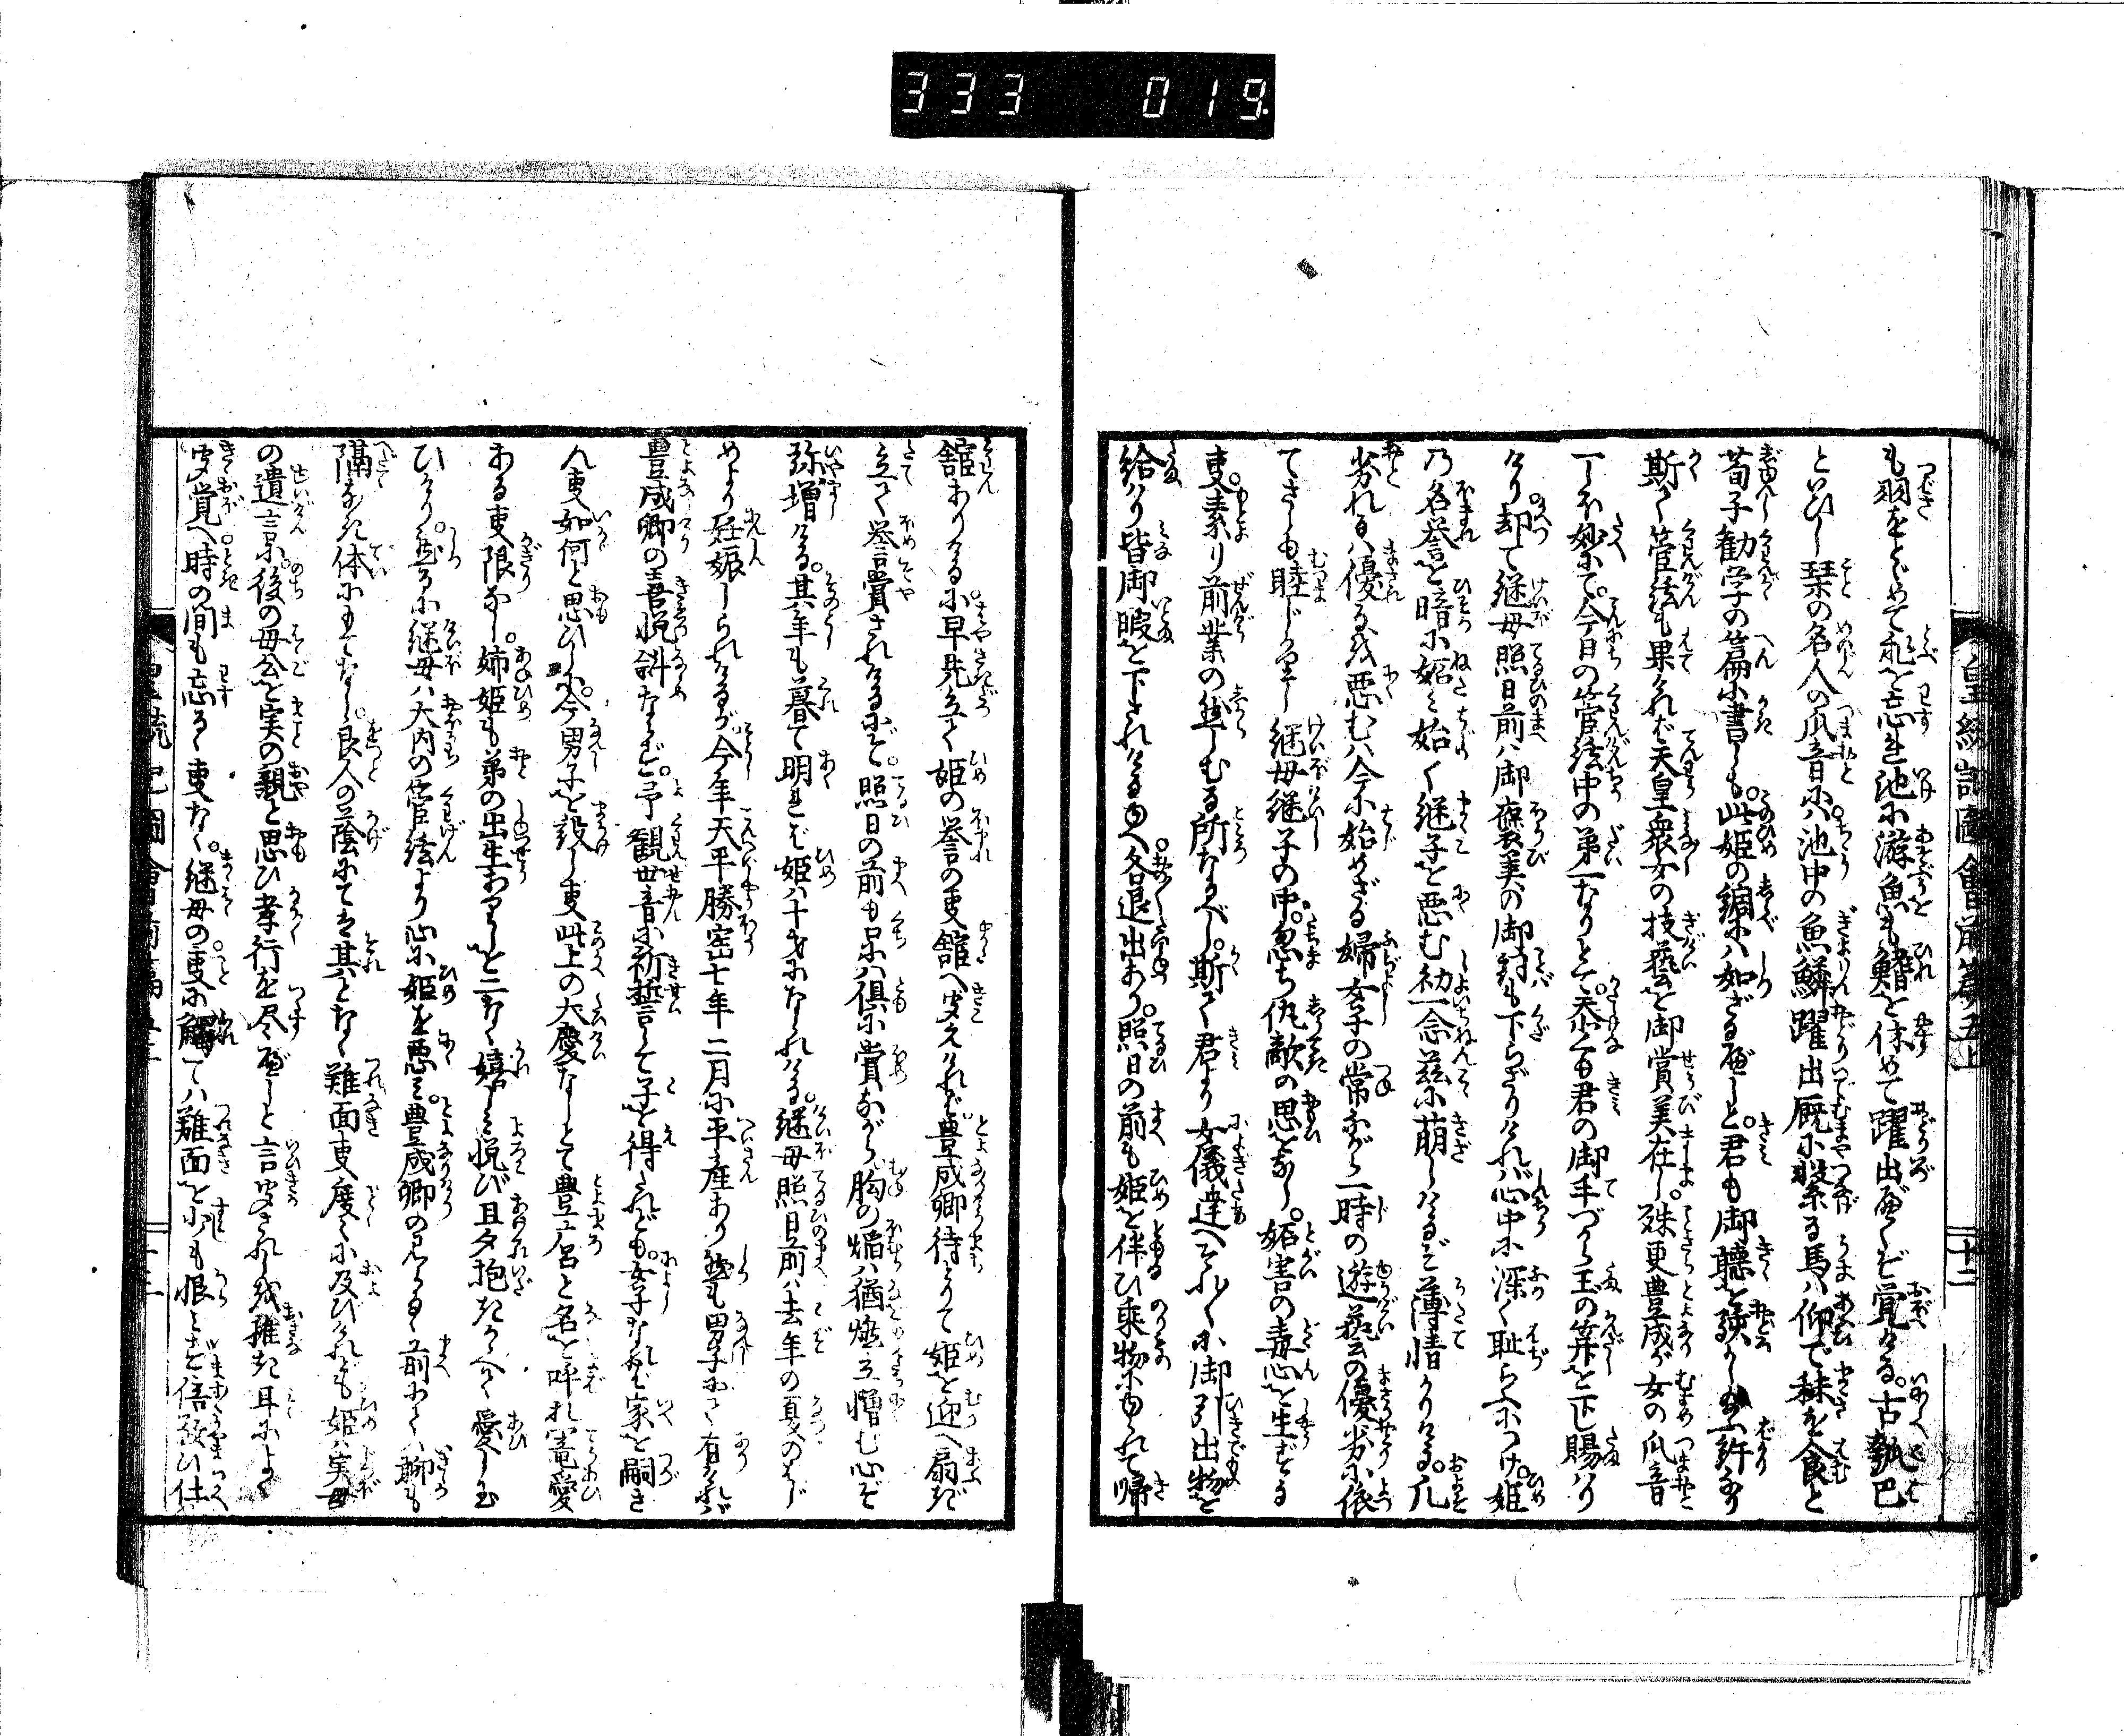 333 019
皇統記圖會前篇五上
十二
も羽をとゞめて飛を忘れ池に游魚も鰭を休めて躍出べくぞ覚ける。古瓠巴
といひし琴の名人の爪音には池中の魚鱗躍出厩に繋る馬は仰で秣を食と
荀子勧学の篇に書しも。此姫の調には如ざるべしと。君も御聴を驚かし給ふ許なり
斯て管絃も果ければ天皇衆女の技藝を御賞美在し。殊更豊成が女の爪音
一しほ妙にて。今日の管絃中の第一なりとて。忝くも君の御手づから玉の簪を下し賜はり
けり。却て継母照日前は御褒美の御詞も下らざりければ心中に深く恥らへにつけ。姫
の名誉を暗に妬み始く継子を悪む初一念茲に萌しけるぞ薄情かりける。凡
劣れるは優るを悪むは今に始めざる婦女子の常ながら一時の遊藝の優劣に依
てさしも睦じかりし継母継子の中。忽ち仇敵の思をなし。妬害の毒心を生ずる
事。素り前業の然しむる所なるべし。斯て君より女儀達へそれ〳〵に御引出物を
給はり皆御暇を下されけるゆへ各退出あり。照日の前も姫を伴ひ乗物にゆられて帰
舘ありけるに早先立て姫の誉の事舘へ聞えければ。豊成卿待うけて姫を迎へ扇だ
立て誉賞されけるにぞ。照日の前も口には倶に賞ながら胸の焔は猶燃立憎む心ぞ
弥増ける。其年も暮て明れば姫は十才になられける。継母照日前は去年の夏のはじ
めより妊娠しられけるが。今年天平勝宝七年二月に平産あり然も男子にて有ければ
豊成卿の喜悦斜ならず。予観世音に祈誓して子を得たれども。女子なれば家を嗣き
人事如何と思ひしに。今男子を設し事此上の大慶なしとて豊丸呂と名を呼れ寵愛
ある事限なし。姉姫も弟の出生ありしを二なく嬉しみ悦び旦夕抱たかへて愛し玉
ひけり。然るに継母は大内の管絃より心に姫を悪み。豊成卿の見る前にては聊も
隔なき体にもてなし。良人の蔭にては其となく難面事度々に及びけれども姫は実母
の遺言に。後の母公を実の親と思ひ孝行を尽べしと言聞されしを稚き耳によく
聞覚へ時の間も忘るゝ事なく。継母の事に觸ては難面を少しも恨みず倍敬ひ仕
皇統記圖會前篇五上
十二